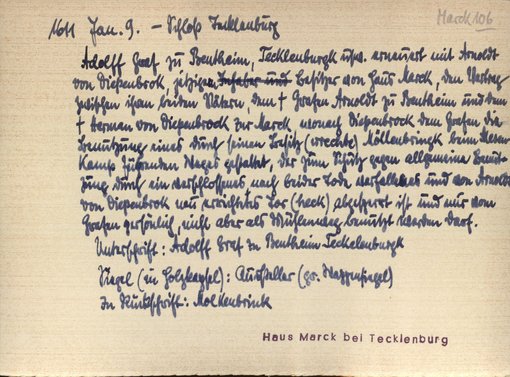 Marck 106
1611 Jan. 9. – Schloß Tecklenburg
Adolff Graf zu Bentheim, Tecklenburgk usw. erneuert mit Arnoldt
von Diepenbrok, jetzigen Inhaber und Besitzer von Haus Marck, den Vertrag
zwischen ihren beiden Vätern, dem † Grafen Arnoldt zu Bentheim und dem
† Herman von Diepenbrock zur Marck wonach Diepenbrock dem Grafen die
Benutzung eines durch seinen Besitz (wrechte) Möllenbringk beim
Kamp führenden Weges gestattet, der zum Schutz gegen allgemeine Benut-
zung durch ein verschlossenes nach beider Tode verfallenes und von Arnoldt
von Diepenbrok neu errichtetes Tor (heck) abgesperrt ist und nur vom
Grafen persönlich, nicht aber als Mühlenweg benutzt werden darf.
Unterschrift: Adolff Graf zu Bentheim Teckelenburgk
Siegel (in Holzkapsel): Aussteller (gr. Wappensiegel)
In Rückschrift: Molkenbrink
Haus Marck bei Tecklenburg